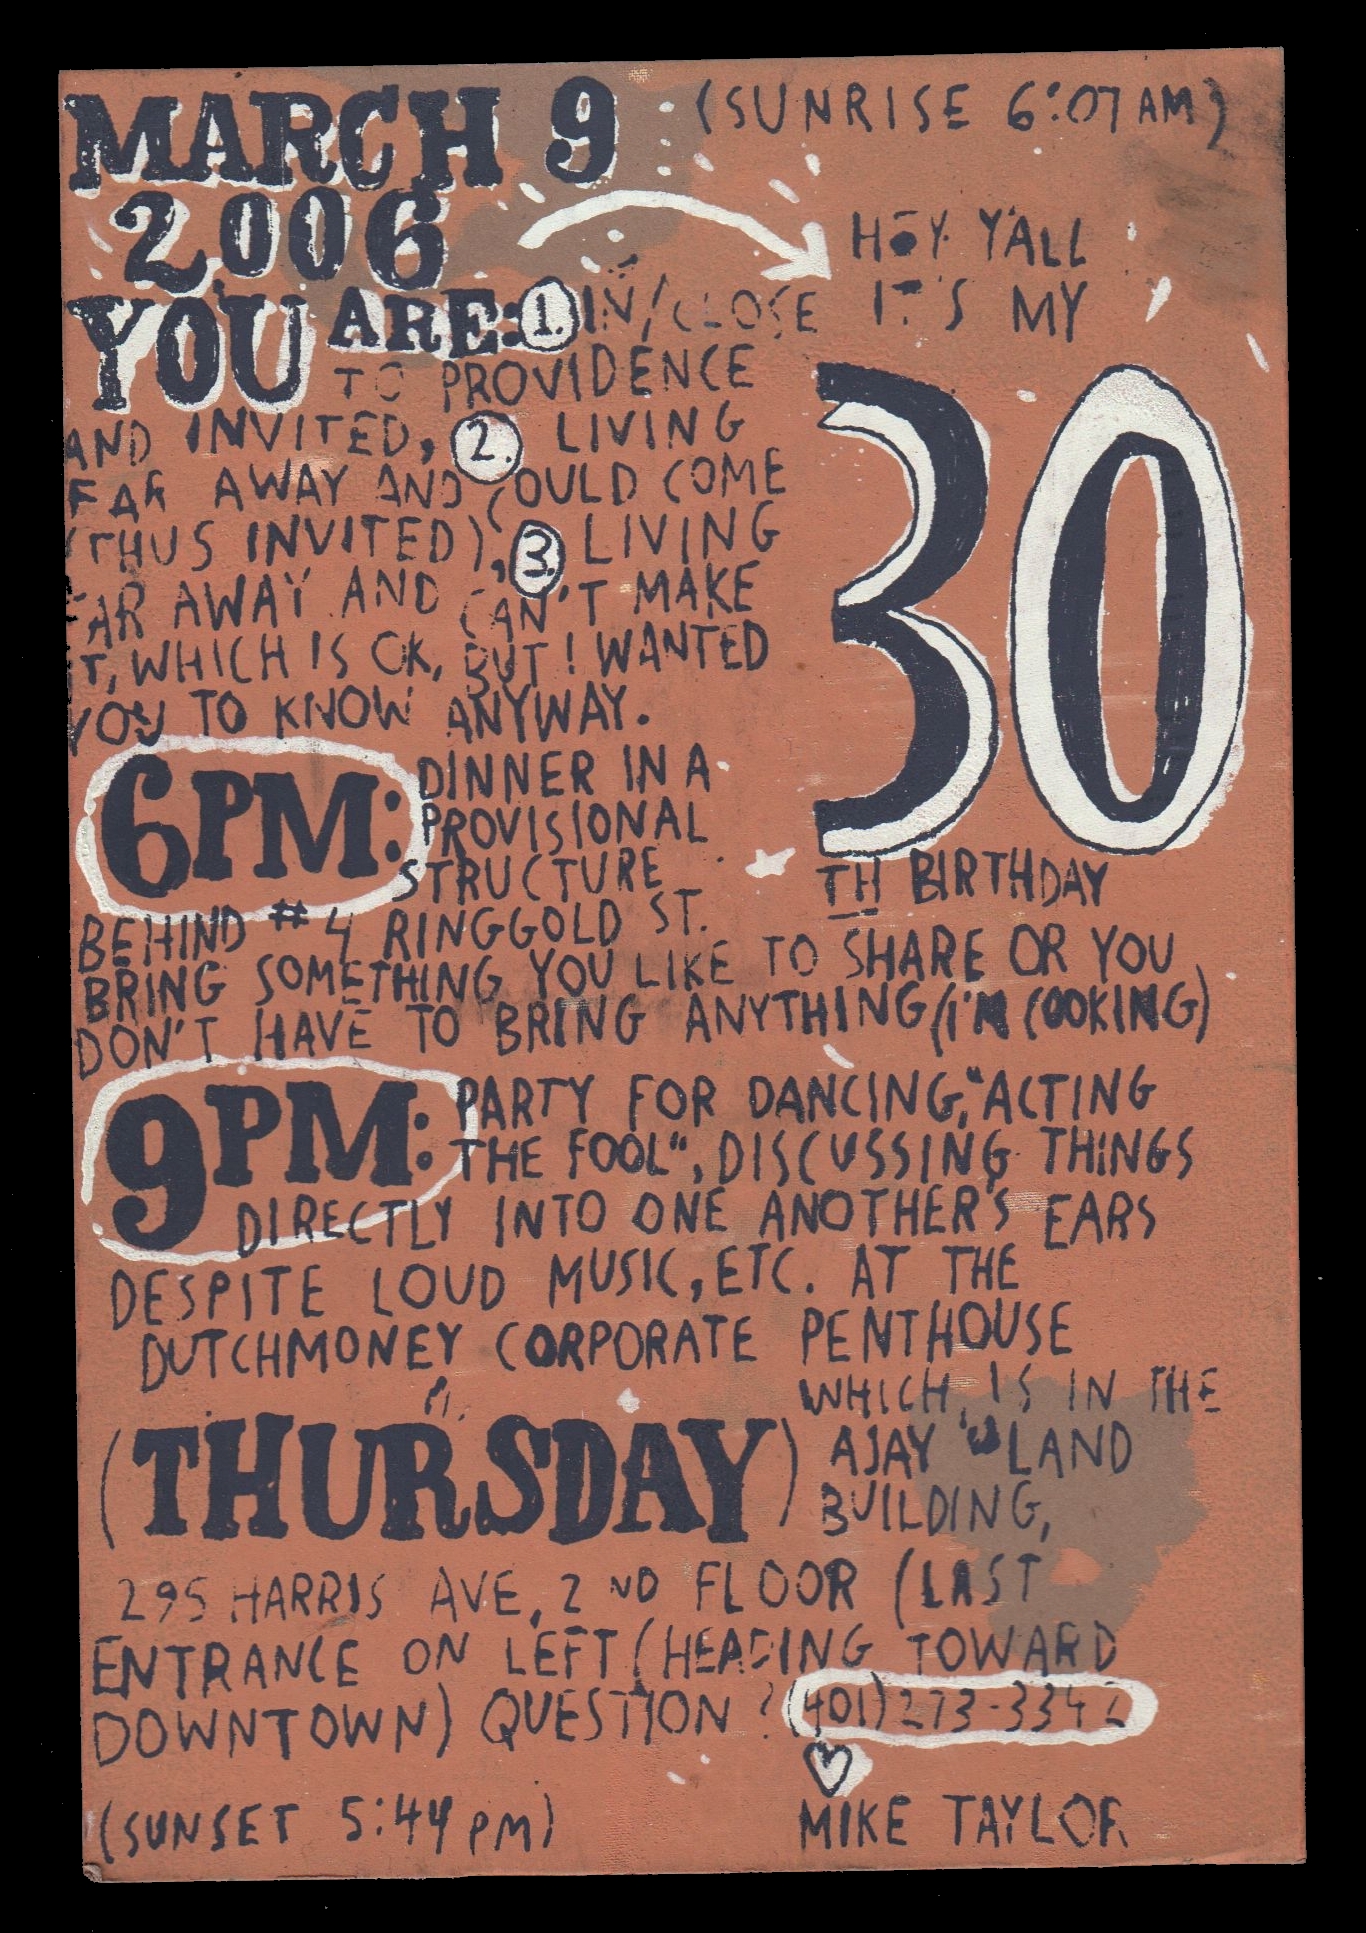 MARCH 9
2006
(SUNRISE 6:07 AM)
HEY Y'ALL
IT'S MY
30
TH BIRTHDAY
YOU ARE: 1. IN/CLOSE
TO PROVIDENCE
AND INVITED, 2. LIVING
FAR AWAY AND COULD COME
(THUS INVITED), 3. LIVING
FAR AWAY AND CAN'T MAKE
IT, WHICH IS OK, BUT I WANTED
YOU TO KNOW ANYWAY.
6PM: DINNER IN A
PROVISIONAL
STRUCTURE
BEHIND #4 RINGGOLD ST.
BRING SOMETHING YOU LIKE TO SHARE OR YOU
DON'T HAVE TO BRING ANYTHING (I'M COOKING)
9PM: PARTY FOR DANCING, "ACTING
THE FOOL", DISCUSSING THINGS
DIRECTLY INTO ONE ANOTHER'S EARS
DESPITE LOUD MUSIC, ETC. AT THE
DUTCHMONEY CORPORATE PENTHOUSE
WHICH IS IN THE
(THURSDAY) AJAY LAND
BUILDING,
295 HARRIS AVE, 2ND FLOOR (LAST
ENTRANCE ON LEFT (HEADING TOWARD
DOWNTOWN) QUESTION? (401) 273-3342
♡
(SUNSET 5:44 PM) MIKE TAYLOR